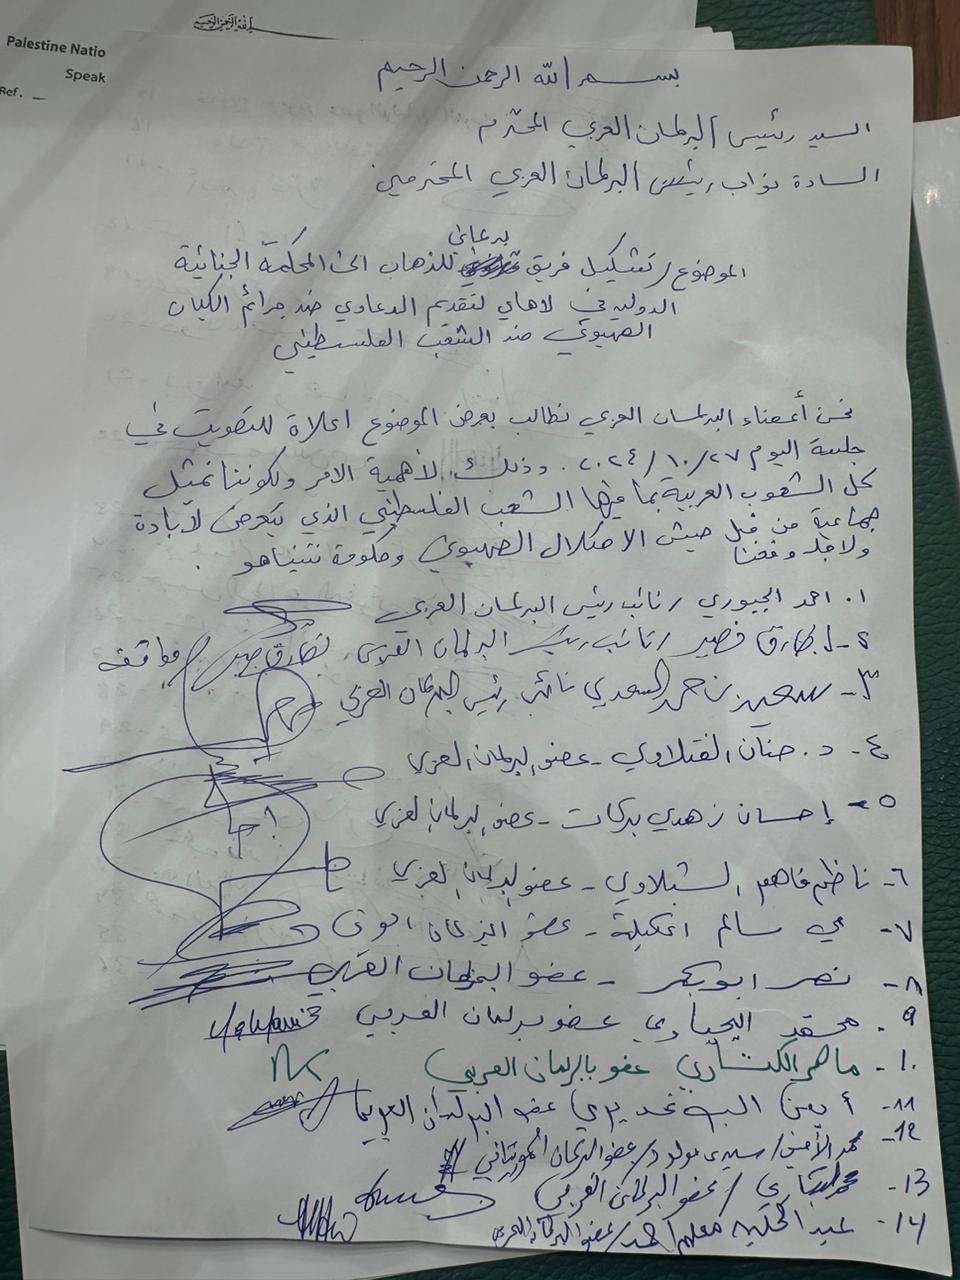 Palestine Natio
Speak
Ref.
بسم الله الرحمن الرحيم
السيد رئيس البرلمان العربي المحترم
السادة نواب رئيس البرلمان العربي المحترمين
برلماني
الموضوع / تشكيل فريق للذهاب الى المحكمة الجنائية
الدولية في لاهاي لتقديم الدعاوي ضد جرائم الكيان
الصهيوني ضد الشعب الفلسطيني
نحن أعضاء البرلمان العربي نطالب بعرض الموضوع اعلاة للتصويت في
جلسة اليوم ٢٠٢٤/١٠/٢٧. وذلك لأهمية الامر ولكوننا نمثل
كل الشعوب العربية بما فيها الشعب الفلسطيني الذي يتعرض لأبادة
جماعية من قبل جيش الاحتلال الصهيوني وحكومة نتنياهو.
ولاجله وقعنا
١. احمد الجبوري / نائب رئيس البرلمان العربي
٢- طارق نصير / نائب رئيس البرلمان العربي موافق
٣- سعيد بن حمد السعدي نائب رئيس البرلمان العربي
٤- د. حنان الفتلاوي - عضو البرلمان العربي
٥- إحسان زهدي بركات - عضو البرلمان العربي
٦- ناظم فاهم الشبلاوي - عضو البرلمان العربي
٧- مي سالم - عضو البرلمان العربي
٨- نصر ابوبكر - عضو البرلمان العربي
٩- محمد اليحياوي عضو برلمان العربي
١٠- ماهر الكتاري عضو بالبرلمان العربي
١١- أيمن عضو البرلمان العربي
١٢- محمد الأمين / سيدي مولود / عضو البرلمان الموريتاني
13- محمد / عضو البرلمان العربي
14- عبد الحكيم معلم احمد / عضو البرلمان العربي